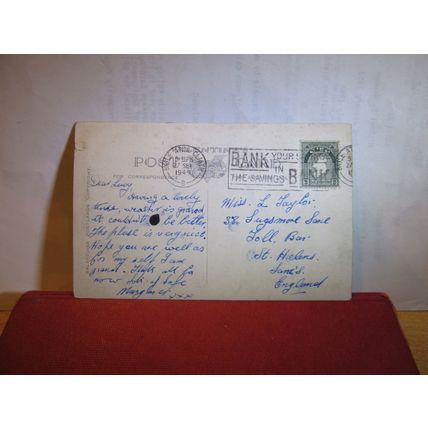 POST
FOR CORRESPONDENCE
1949
BANK YOUR
IN
THE SAVINGS B
Dear Lucy
Having a lovely
time, weather is grand
it couldn't be better.
The place is very nice.
Hope you are well as
for my self I am
grand. That's all for
now lots of love
xxx
Miss. L Taylor.
Lane
Toll Bar
St. Helens.
Lancs.
England